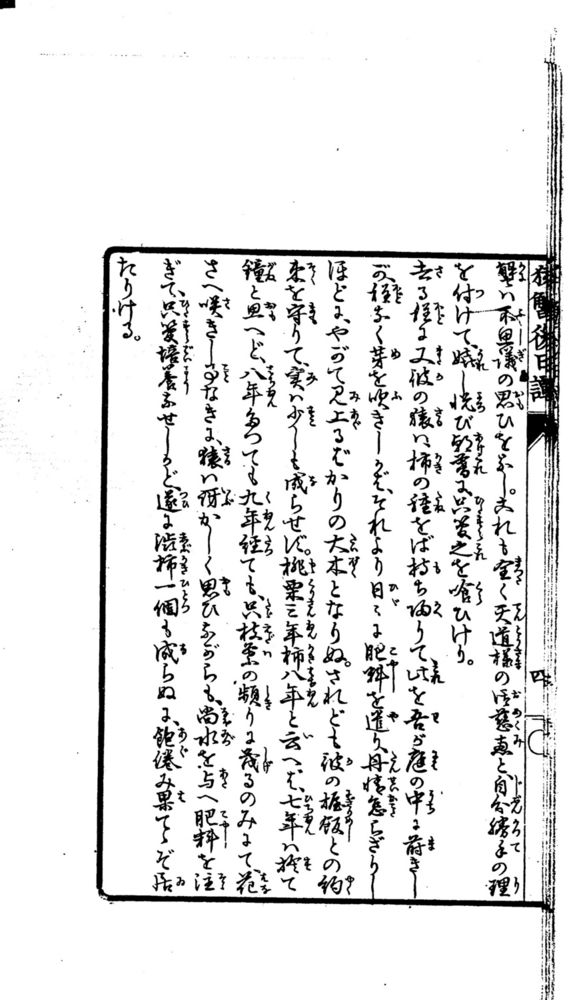 猿蟹後日譚
蟹ハ不思議の思ひをなし。これも全く天道様の御慈恵と、自分勝手の理
を付けて、嬉し悦び朝暮に只管之を喰ひけり。
去る程に又彼の猿ハ柿の種をば持ち帰りて此を吾が庭の中に蒔きし
が、程なく芽を吹きしかバ、それより日々に肥料を遣り、丹情怠らざりし
ほどに、やがて見上るばかりの大木となりぬ。されども彼の握飯との約
束を守りて、実ハ少しも成らせず。桃栗三年柿八年と云へば、七年ハ捨て
鐘と思へど、八年たつても九年経ても、只枝葉の頻りに茂るのみにて、花
さへ咲きし事なきに、猿ハ訝かしく思ひながらも、尚水を与へ肥料を注
ぎて、只管培養なせしかど、遂に渋柿一個も成らぬに、飽倦み果てゝぞ居
たりける。
四